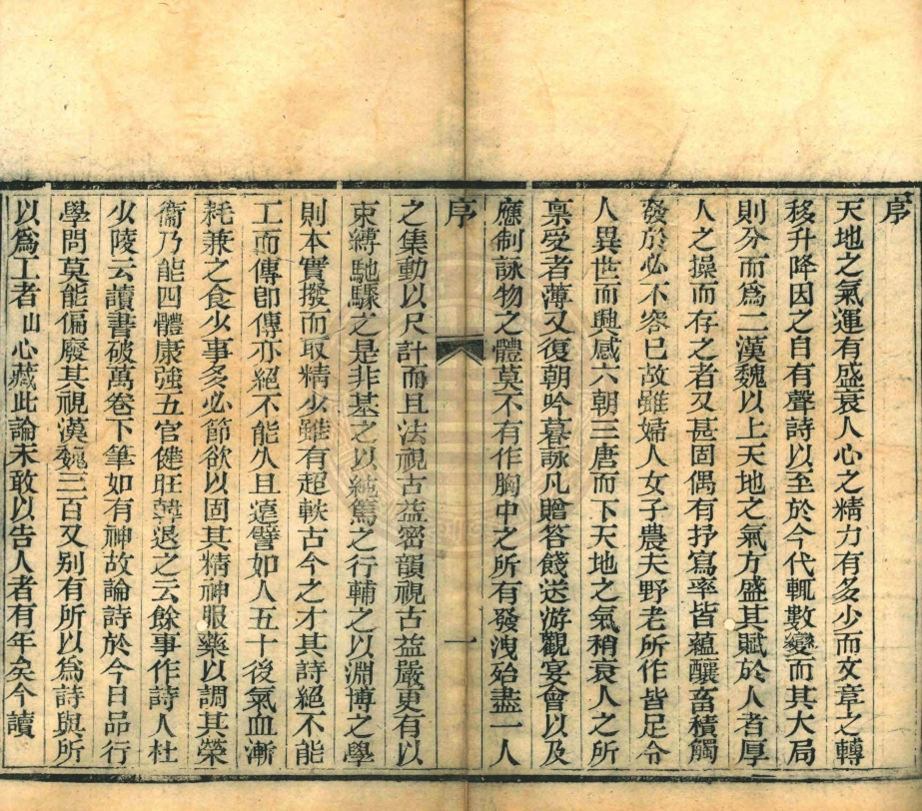 序
天地之氣運有盛衰人心之精力有多少而文章之轉
移升降因之自有聲詩以至於今代輒數變而其大局
則分而爲二漢魏以上天地之氣方盛其賦於人者厚
人之操而存之者又甚固偶有抒寫率皆蘊釀畜積觸
發於必不容已故雖婦人女子農夫野老所作皆足令
人異世而興感六朝三唐而下天地之氣稍衰人之所
禀受者薄又復朝吟暮詠凡贈答餞送游觀宴會以及
應制詠物之體莫不有作胸中之所有發洩殆盡一人
序
一
之集動以尺計而且法視古益密韻視古益嚴更有以
束縛馳驟之是非基之以純篤之行輔之以淵博之學
則本實撥而取精少雖有超軼古今之才其詩絕不能
工而傳卽傳亦絕不能久且遠譬如人五十後氣血漸
耗兼之食少事多必節欲以固其精神服藥以調其榮
衞乃能四體康強五官健旺韓退之云餘事作詩人杜
少陵云讀書破萬卷下筆如有神故論詩於今日品行
學問莫能偏廢其視漢魏三百又别有所以爲詩與所
以爲工者山心藏此論未敢以告人者有年矣今讀